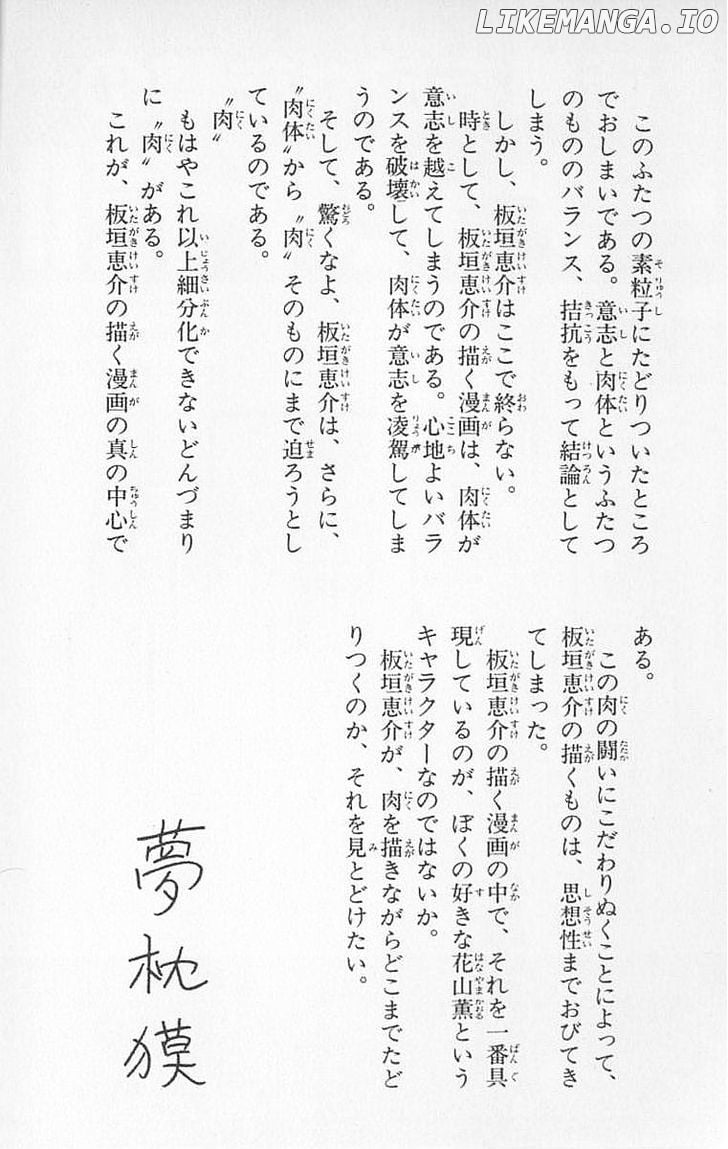 LIKEMANGA.IO
このふたつの素粒子にたどりついたところ
でおしまいである。意志と肉体というふたつ
のもののバランス、拮抗をもって結論として
しまう。
しかし、板垣恵介はここで終らない。
時として、板垣恵介の描く漫画は、肉体が
意志を越えてしまうのである。心地よいバラ
ンスを破壊して、肉体が意志を凌駕してしま
うのである。
そして、驚くなよ、板垣恵介は、さらに、
〝肉体〟から〝肉〟そのものにまで迫ろうとし
ているのである。
〝肉〟
もはやこれ以上細分化できないどんづまり
に〝肉〟がある。
これが、板垣恵介の描く漫画の真の中心で
ある。
この肉の闘いにこだわりぬくことによって、
板垣恵介の描くものは、思想性までおびてき
てしまった。
板垣恵介の描く漫画の中で、それを一番具
現しているのが、ぼくの好きな花山薫という
キャラクターなのではないか。
板垣恵介が、肉を描きながらどこまでたど
りつくのか、それを見とどけたい。
夢枕獏